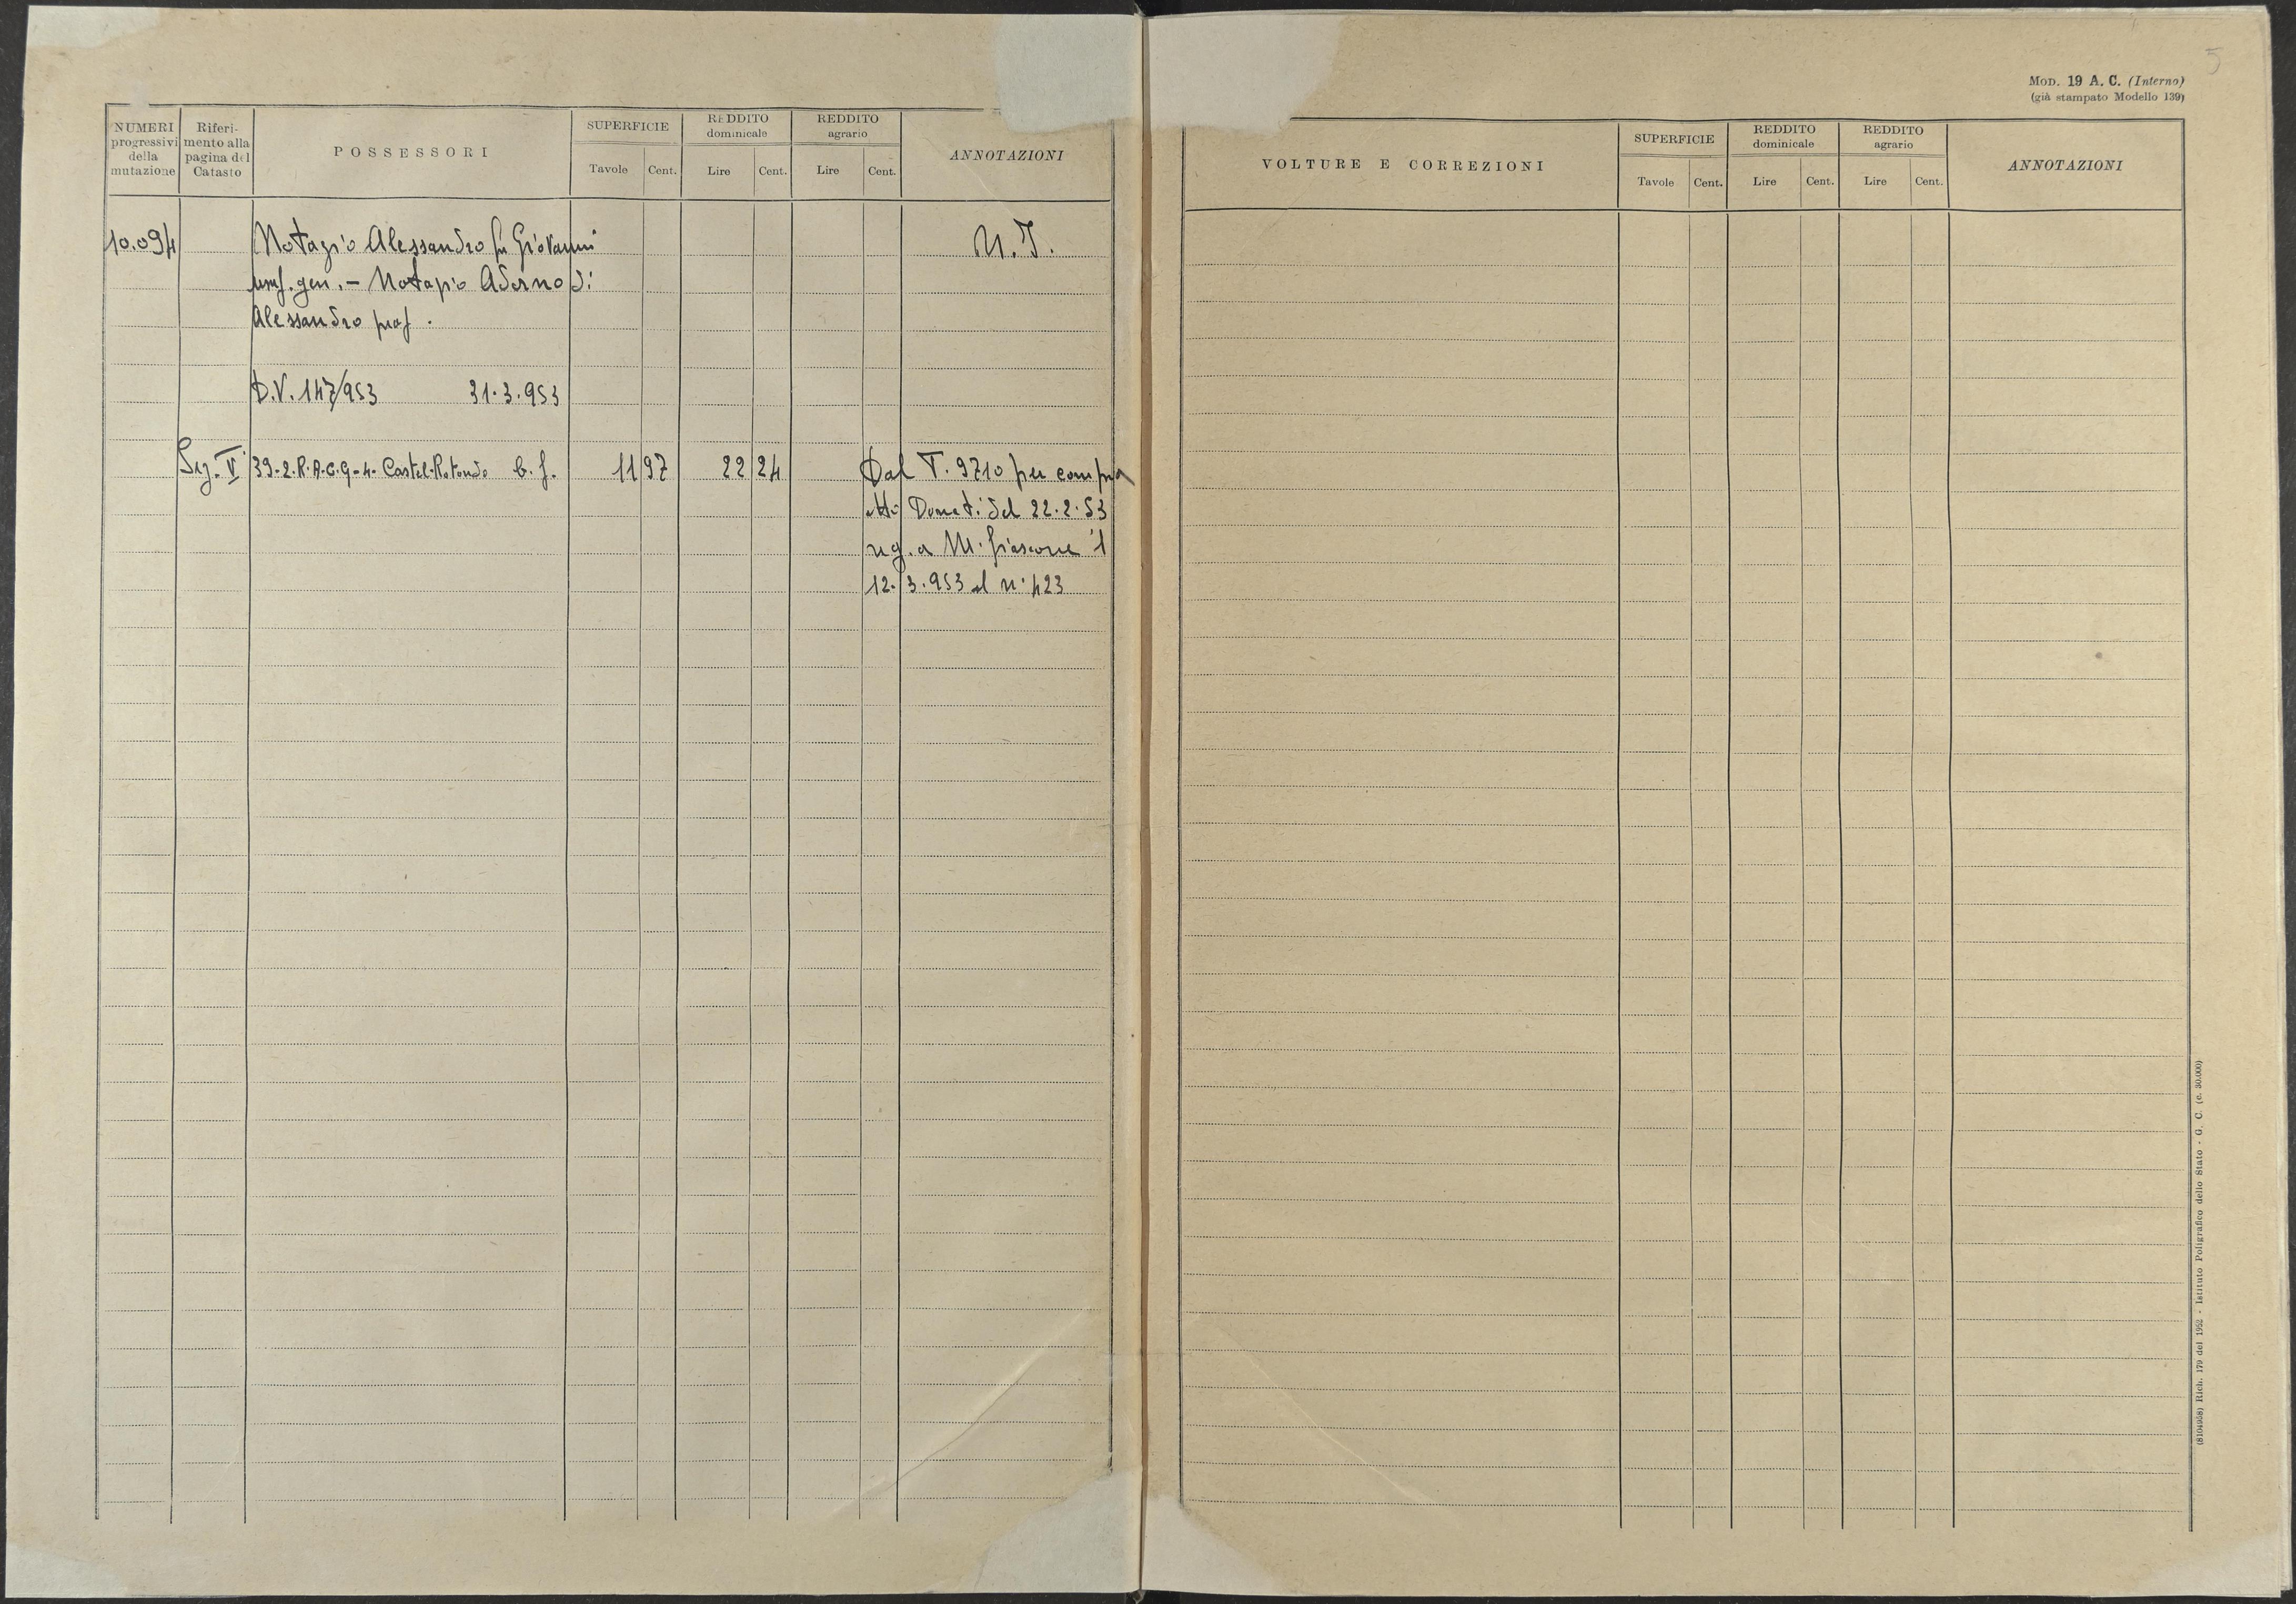 5
MOD. 19 A. C. (Interno)
(già stampato Modello 139)
NUMERI progressivi della mutazione
Riferimento alla pagina del Catasto
POSSESSORI
SUPERFICIE
Tavole Cent.
REDDITO dominicale
Lire Cent.
REDDITO agrario
Lire Cent.
ANNOTAZIONI
10.094 Notazio Alessandro fu Giovanni N.T.
usuf. gen. - Notazio Aderno di
Alessandro prof.
D.V. 147/953 31.3.953
Sez. V 39-2.R.A.C.G-4- Castel-Rotondo b. f. 11 97 22 24 Dal T. 9710 per compra
atto Donati del 22.2.53
reg. a M. fiascone il
12.3.953 al n° 423
VOLTURE E CORREZIONI
SUPERFICIE
Tavole Cent.
REDDITO dominicale
Lire Cent.
REDDITO agrario
Lire Cent.
ANNOTAZIONI
(8104958) Rich. 179 del 1952 - Istituto Poligrafico dello Stato - G. C. (c. 30.000)